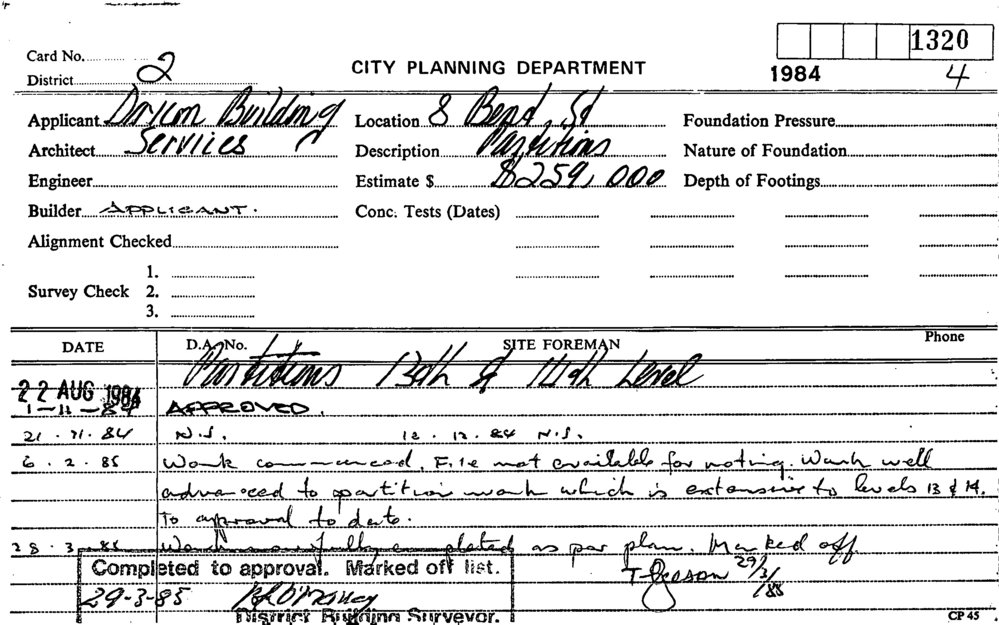 Card No. 2
District
CITY PLANNING DEPARTMENT
1320
1984 4
Applicant Building Location 8 Bend St Foundation Pressure
Architect Services Description Partitions Nature of Foundation
Engineer Estimate $ $259,000 Depth of Footings
Builder APPLICANT. Conc. Tests (Dates)
Alignment Checked
1.
Survey Check 2.
3.
DATE D.A. No. SITE FOREMAN Phone
Partitions 13th & 14th Level
22 AUG 1984
1-11-84 APPROVED.
21.11.84 N.S. 12.12.84 N.S.
6.2.85 Work commenced. File not available for noting. Work well
advanced to partition work which is extensive to levels 13 & 14.
To approval to date.
28.3.85 Work now fully completed as per plan. Marked off.
Completed to approval. Marked off list. 29/3/85
29-3-85
District Building Surveyor.
CP 45